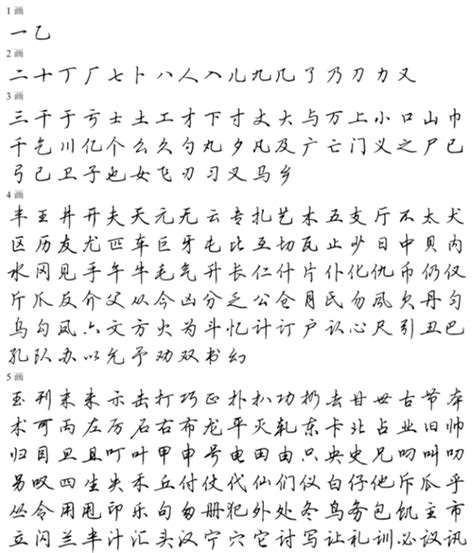 1 画
一 乙
2 画
二 十 丁 厂 七 卜 八 人 入 儿 九 几 了 乃 刀 力 又
3 画
三 干 于 亏 士 土 工 才 下 寸 丈 大 与 万 上 小 口 山 巾
千 乞 川 亿 个 么 久 勺 丸 夕 凡 及 广 亡 门 义 之 尸 已
弓 己 卫 子 也 女 飞 刃 习 叉 马 乡
4 画
丰 王 井 开 夫 天 元 无 云 专 扎 艺 木 五 支 厅 不 太 犬
区 历 友 尤 匹 车 巨 牙 屯 比 互 切 瓦 止 少 日 中 贝 内
水 冈 见 手 午 牛 毛 气 升 长 仁 什 片 仆 化 仇 币 仍 仅
斤 爪 反 介 父 从 今 凶 分 乏 公 仓 月 氏 勿 风 欠 丹 匀
乌 勾 凤 六 文 方 火 为 斗 忆 计 订 户 认 心 尺 引 丑 巴
孔 队 办 以 允 予 劝 双 书 幻
5 画
玉 刊 末 未 示 击 打 巧 正 扑 扒 功 扔 去 甘 世 古 节 本
术 可 丙 左 厉 石 右 布 龙 平 灭 轧 东 卡 北 占 业 旧 帅
归 目 旦 且 叮 叶 甲 申 号 电 田 由 只 央 史 兄 叼 叫 叨
另 叹 四 生 失 禾 丘 付 仗 代 仙 们 仪 白 仔 他 斥 瓜 乎
丛 令 用 甩 印 乐 句 匆 册 犯 外 处 冬 鸟 务 包 饥 主 市
立 闪 兰 半 汁 汇 头 汉 宁 穴 它 讨 写 让 礼 训 必 议 讯